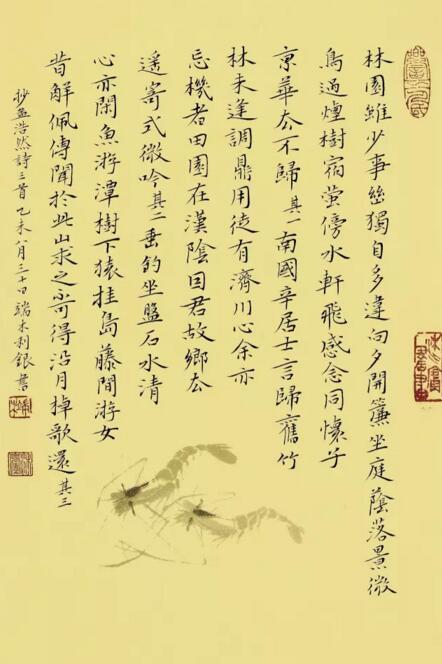 林園雖少事幽獨自多違向夕開簾坐庭蔭落景微
鳥過煙樹宿萤傍水軒飛感念同懷子
京華去不歸其一南國辛居士言歸舊竹
林未逢調鼎用徒有濟川心余亦
忘機者田園在漢陰因君故鄉去
遙寄式微吟其二垂釣坐盤石水清
心亦閑魚游潭樹下猿挂島藤間游女
昔解佩傳聞於此山求之不可得沿月棹歌還其三
抄孟浩然詩三首乙未八月三十日端木利銀書